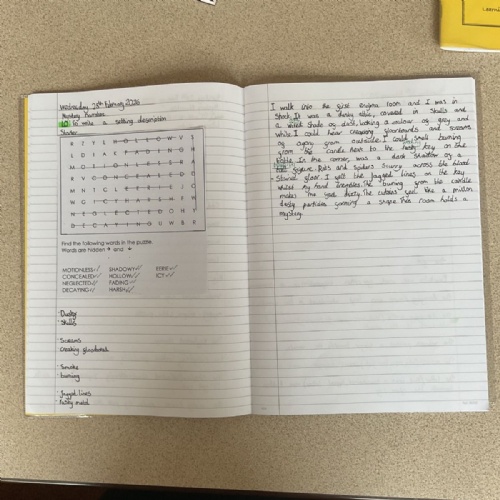 Learni
Wednesday 25th February 2026
Monday
LO: To write a setting description
Starter
R Z Y E H O L L O W V S
L D I A F A D I N G
M O T I O N L E S S
R V C O N C E A L E D
M N I C L
W G I C Y H A R S H E W
N E G L E C T E D O H Y
D E C A Y I N G U W B R
Find the following words in the puzzle.
Words are hidden → and ↓
MOTIONLESS SHADOWY EERIE
CONCEALED HOLLOW ICY
NEGLECTED FADING
DECAYING HARSH
· Dusty
· Skulls
· Screams
creaking floorboards
· Smoke
· burning
· Jagged lines
· rusty metal
I walk into the first enigma room and I was in
shock. It was a dusty attic, covered in skulls and
a mixed shade of dust, looking a mixture of grey and
white. I could hear creaking floorboards and screams
of agony from outside. I could smell burning
from the candle next to the rusty key on the
table. In the corner, was a dark shadow of a
figure. Rats and spiders scurry across the
floor. I felt the jagged lines on the key
whilst my hand trembles. The burning from the candle
makes me feel dusty. The cubes feel like a million
dusty particles forming a shape. This room holds a
mystery.